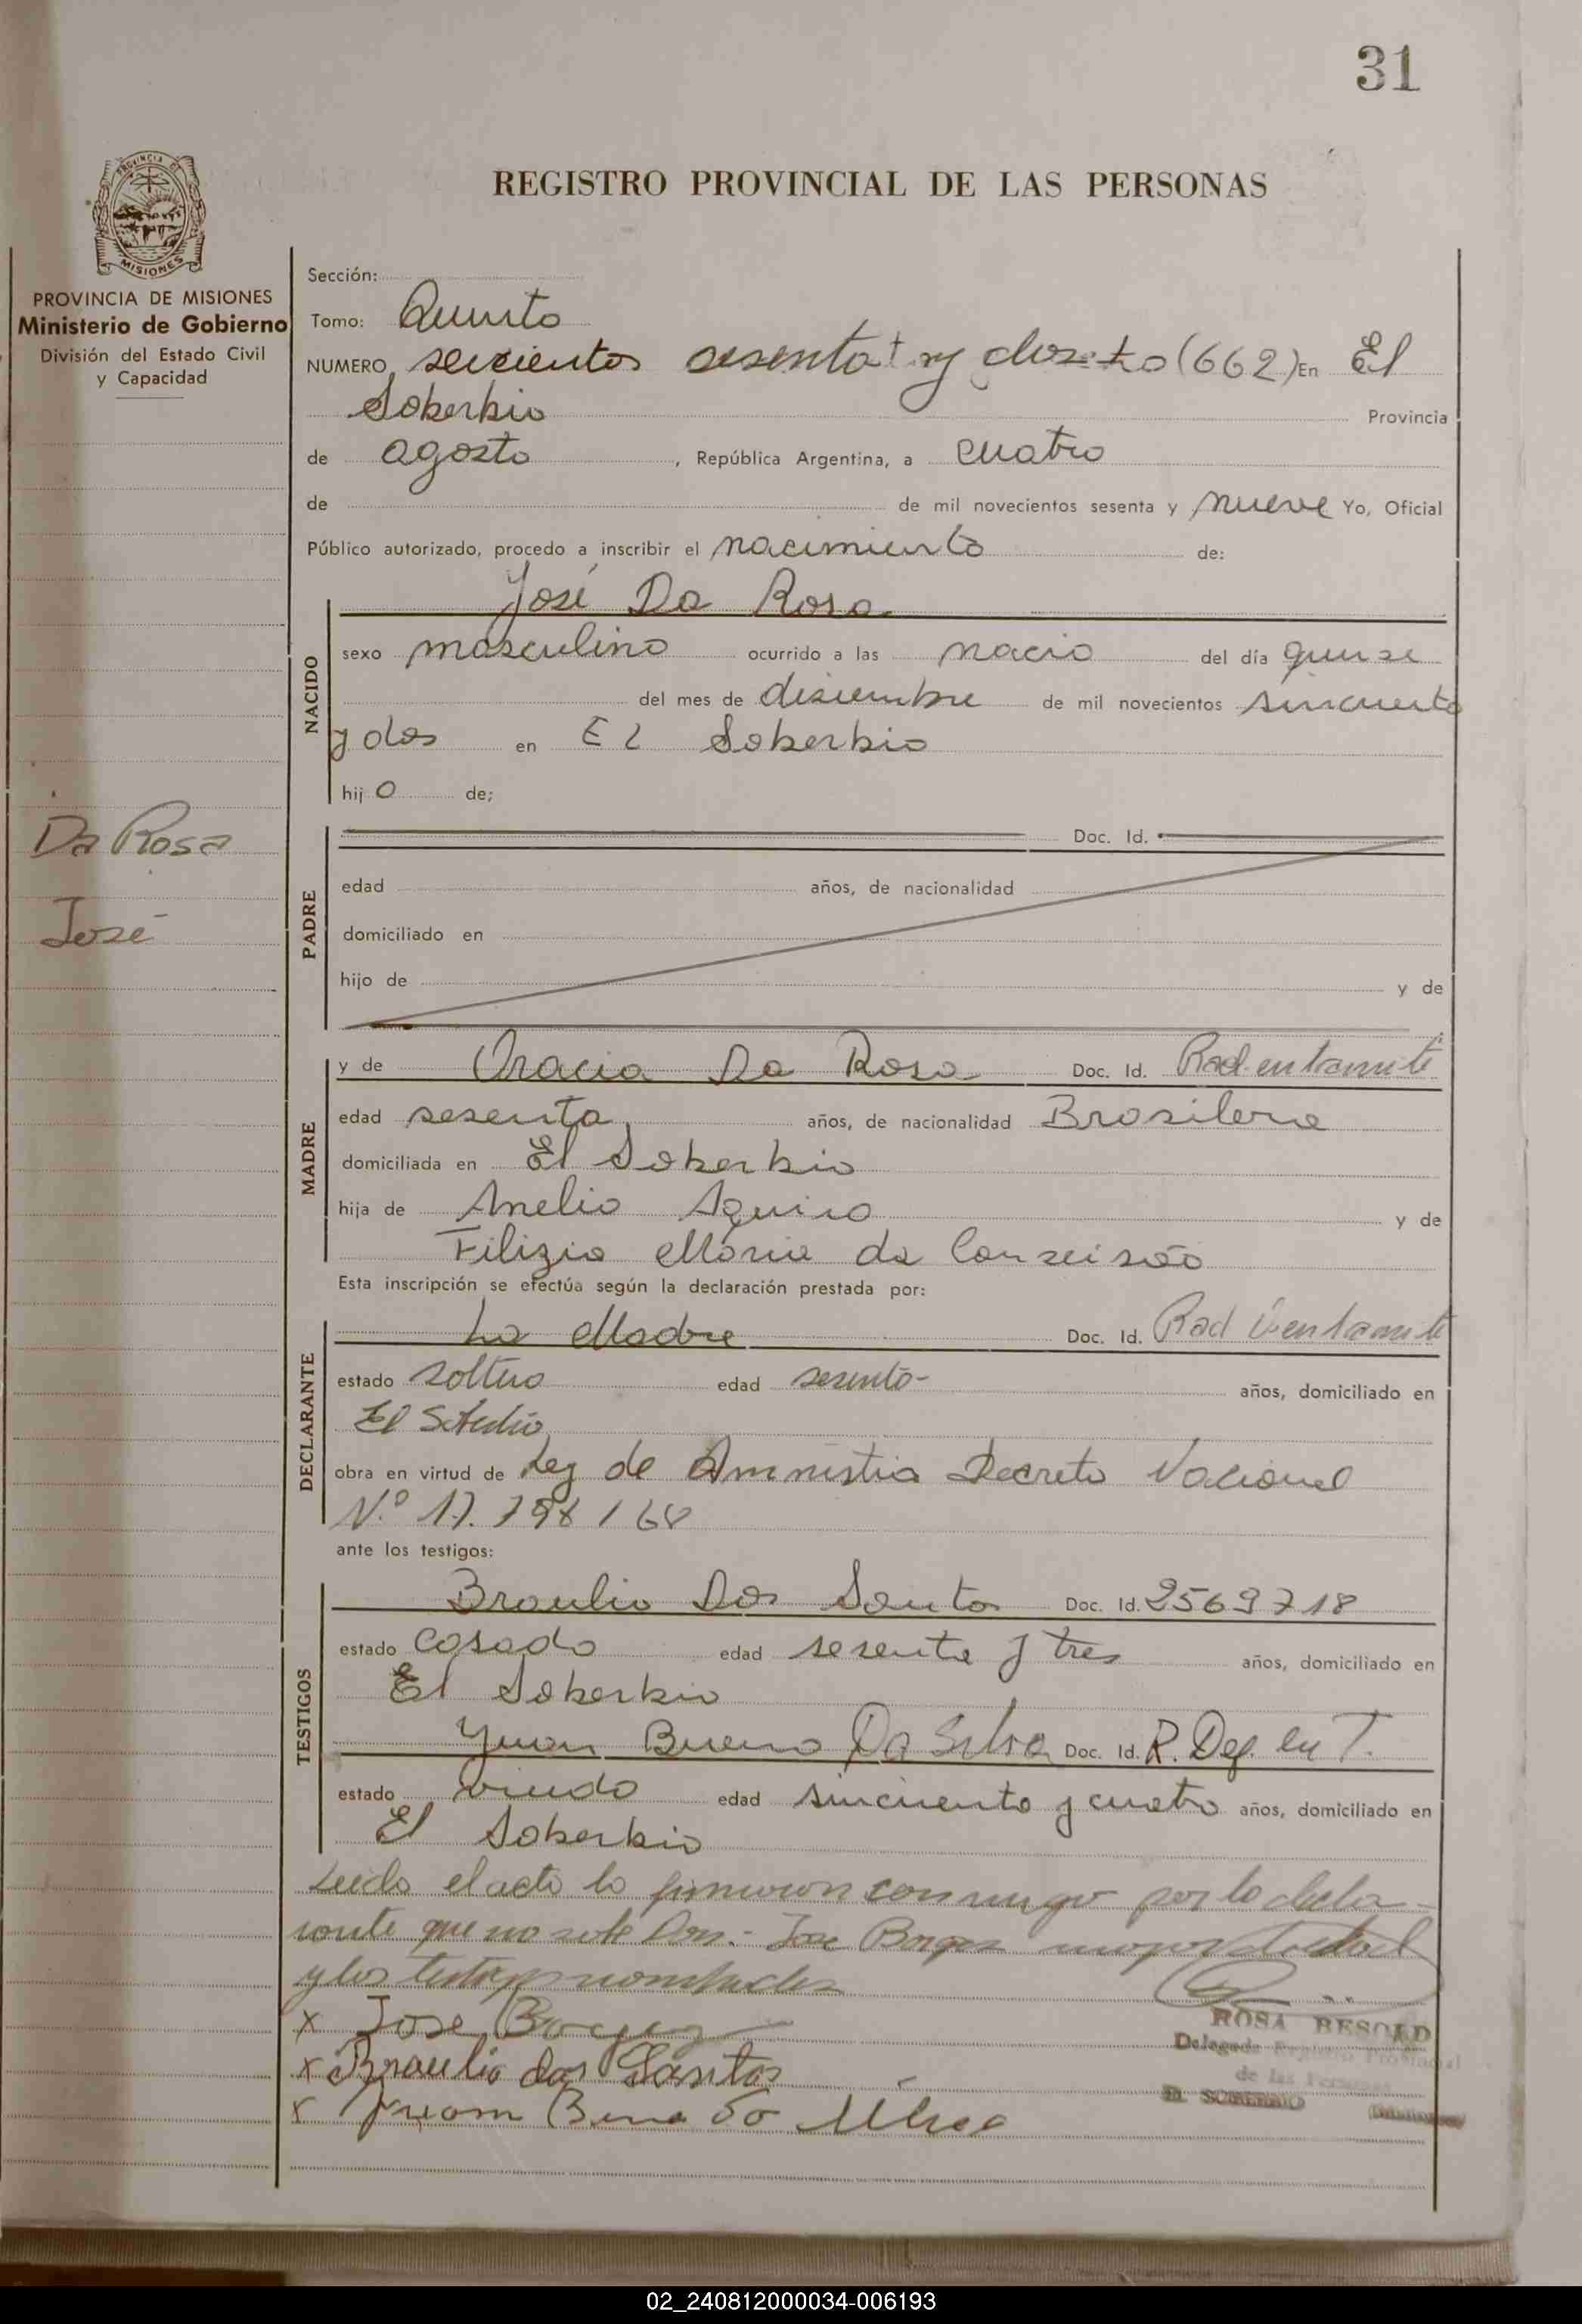 31
PROVINCIA DE
MISIONES
REGISTRO PROVINCIAL DE LAS PERSONAS
PROVINCIA DE MISIONES
Ministerio de Gobierno
División del Estado Civil
y Capacidad
Da Rosa
José
Sección:
Tomo: Quinto
NUMERO seiscientos sesenta y dos (662) En El
Soberbio Provincia
de agosto, República Argentina, a cuatro
de de mil novecientos sesenta y nueve Yo, Oficial
Público autorizado, procedo a inscribir el nacimiento de:
José Da Rosa
NACIDO
sexo masculino ocurrido a las nacio del día quinse
del mes de disiembre de mil novecientos sincuenta
y dos en El Soberbio
hijo de;
PADRE
Doc. Id.
edad años, de nacionalidad
domiciliado en
hijo de y de
MADRE
y de Oracia Da Rosa Doc. Id. Rad. en tramite
edad sesenta años, de nacionalidad Brasilera
domiciliada en El Soberbio
hija de Anelio Aquino y de
Filizia Maria da Conseisão
Esta inscripción se efectúa según la declaración prestada por:
DECLARANTE
La Madre Doc. Id. Rad en tramite
estado soltera edad sesenta- años, domiciliado en
El Soberbio
obra en virtud de Ley de Amnistia Decreto Nacional
N.º 17.798/68
ante los testigos:
TESTIGOS
Braulio Dos Santos Doc. Id. 2569718
estado casado edad sesenta y tres años, domiciliado en
El Soberbio
Juan Bueno Da Silva Doc. Id. R. Dep. en T.
estado viudo edad sincuenta y cuatro años, domiciliado en
El Soberbio
Leida el acta la firmaron conmigo por la decla-
rante que no sabe Don.- Jose Borges mayor de edad
y los testigos nombrados
x Jose Borges
x Braulio dos Santos
x Juam Buena da Silva
ROSA BESOLD
Delegada Registro Provincial
de las Personas
EL SOBERBIO (Misiones)
02_240812000034-006193